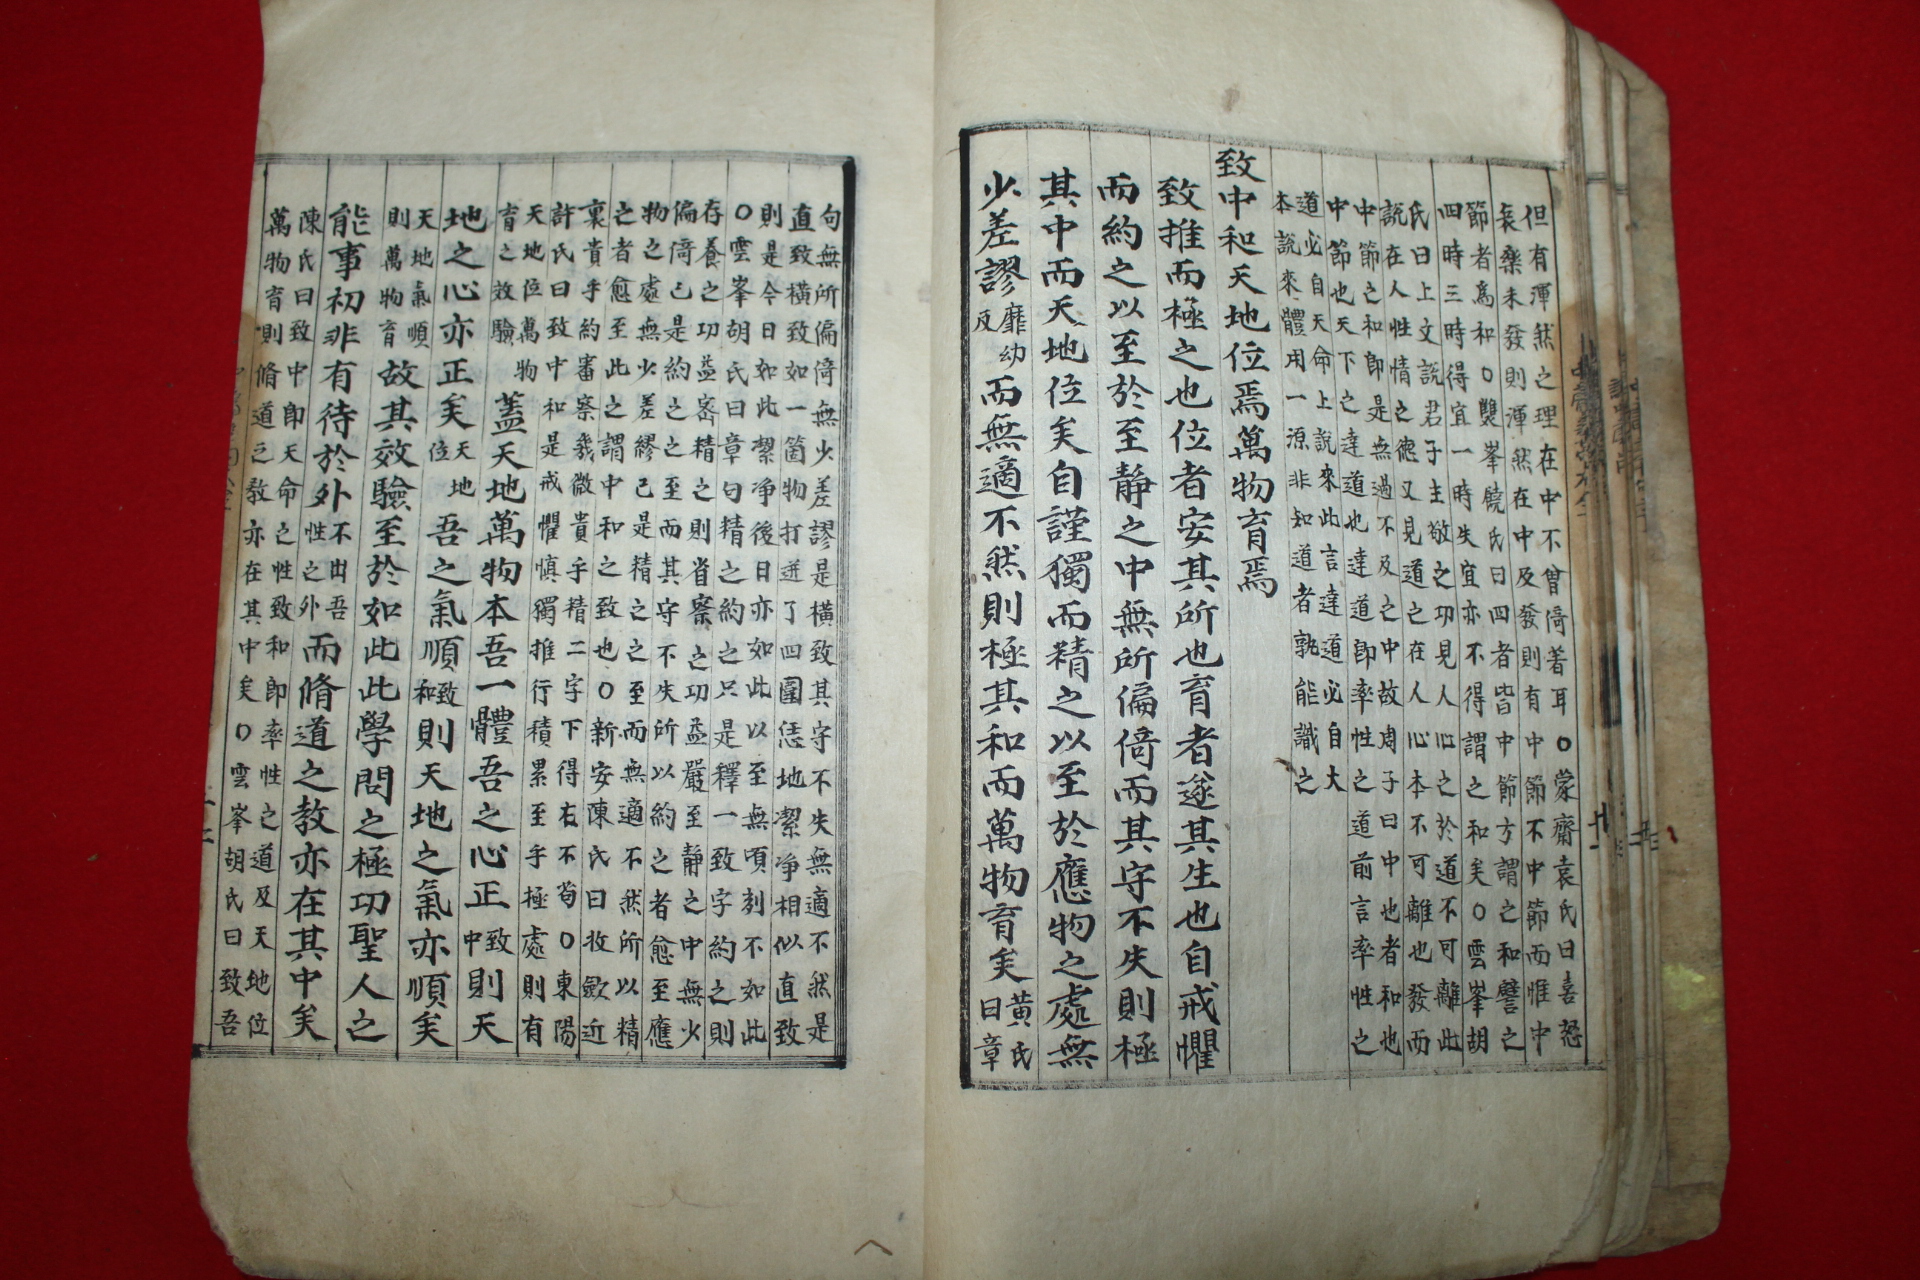 但有渾然之理在中不曾倚著耳○蒙齋袁氏曰喜怒
哀樂未發則渾然在中及發則有中節不中節而惟中
節者爲和○雙峯饒氏曰四者皆中節方謂之和譬之
四時三時得宜一時失宜亦不得謂之和矣○雲峯胡
氏曰上文說君子主敬之功見人心之於道不可離此
說在人性情之德又見道之在人心本不可離也發而
中節之和卽是無過不及之中故周子曰中也者和也
中節也天下之達道也達道卽率性之道前言率性之
道必自天命上說來此言達道必自大
本說來體用一源非知道者孰能識之
致中和天地位焉萬物育焉
致推而極之也位者安其所也育者遂其生也自戒懼
而約之以至於至靜之中無所偏倚而其守不失則極
其中而天地位矣自謹獨而精之以至於應物之處無
少差謬靡幼及而無適不然則極其和而萬物育矣黃氏曰章
句無所偏倚無少差謬是橫致其守不失無適不然是
直致橫致如一箇物打迸了四圍恁地潔淨相似直致
則是今日如此潔淨後日亦如此以至無頃刻不如此
○雲峯胡氏曰章句精之約之只是釋一致字約之則
存養之功益密精之則省察之功益嚴至靜之中無少
偏倚已是約之之至而其守不失所以約之者愈至應
物之處無少差繆已是精之之至而無適不然所以精
之者愈至此之謂中和之致也○新安陳氏曰收斂近
裏貴乎約審察幾微貴乎精二字下得右不苟○東陽
許氏曰致中和是戒懼愼獨推行積累至乎極處則有
天地位萬物育之效驗蓋天地萬物本吾一體吾之心正致中則天
地之心亦正矣天地位吾之氣順致和則天地之氣亦順矣
天地氣順則萬物育故其效驗至於如此此學問之極功聖人之
能事初非有待於外不出吾性之外而脩道之教亦在其中矣
陳氏曰致中卽天命之性致和卽率性之道及天地位
萬物育則脩道之教亦在其中矣○雲峯胡氏曰致吾